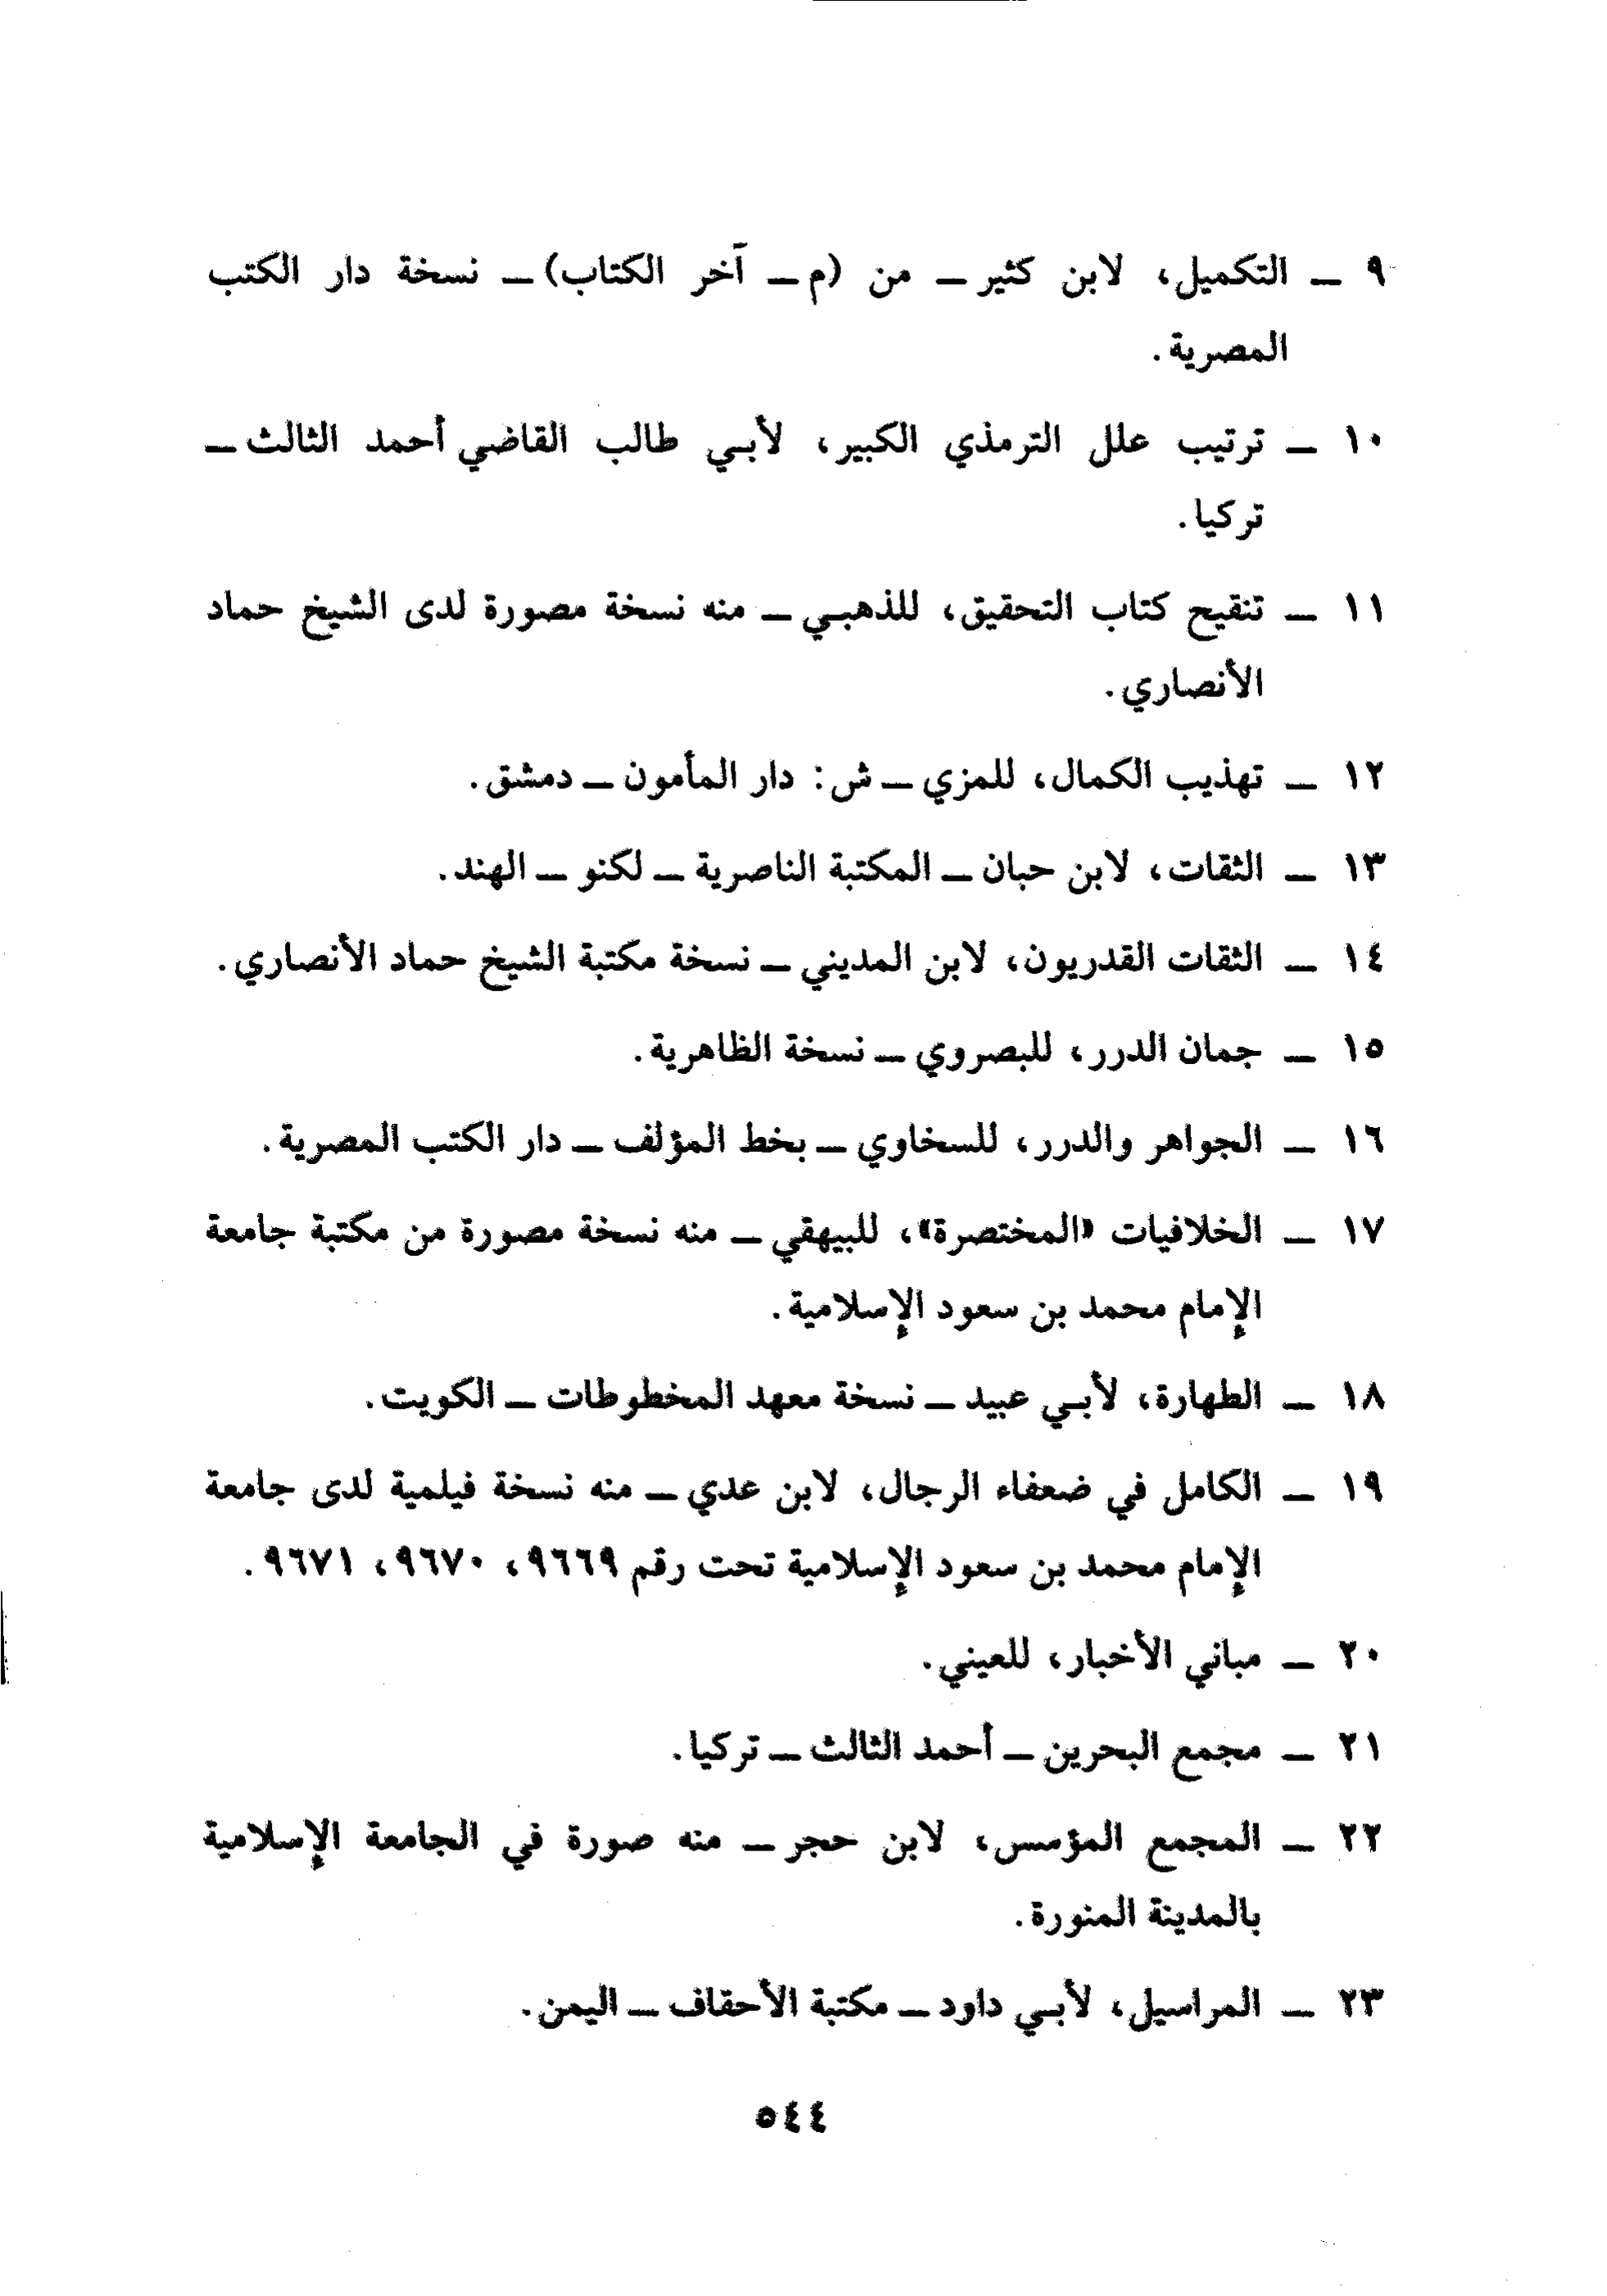 ٩ ــ التكميل، لابن كثير ــ من (م ــ آخر الكتاب) ــ نسخة دار الكتب
المصرية.
١٠ ــ ترتيب علل الترمذي الكبير، لأبي طالب القاضي أحمد الثالث ــ
تركيا.
١١ ــ تنقيح كتاب التحقيق، للذهبي ــ منه نسخة مصورة لدى الشيخ حماد
الأنصاري.
١٢ ــ تهذيب الكمال، للمزي ــ ش: دار المأمون ــ دمشق.
١٣ ــ الثقات، لابن حبان ــ المكتبة الناصرية ــ لكنو ــ الهند.
١٤ ــ الثقات القدريون، لابن المديني ــ نسخة مكتبة الشيخ حماد الأنصاري.
١٥ ــ جمان الدرر، للبصروي ــ نسخة الظاهرية.
١٦ ــ الجواهر والدرر، للسخاوي ــ بخط المؤلف ــ دار الكتب المصرية.
١٧ ــ الخلافيات «المختصرة»، للبيهقي ــ منه نسخة مصورة من مكتبة جامعة
الإمام محمد بن سعود الإسلامية.
١٨ ــ الطهارة، لأبي عبيد ــ نسخة معهد المخطوطات ــ الكويت.
١٩ ــ الكامل في ضعفاء الرجال، لابن عدي ــ منه نسخة فيلمية لدى جامعة
الإمام محمد بن سعود الإسلامية تحت رقم ٩٦٦٩، ٩٦٧٠، ٩٦٧١.
٢٠ ــ مباني الأخبار، للعيني.
٢١ ــ مجمع البحرين ــ أحمد الثالث ــ تركيا.
٢٢ ــ المجمع المؤسس، لابن حجر ــ منه صورة في الجامعة الإسلامية
بالمدينة المنورة.
٢٣ ــ المراسيل، لأبي داود ــ مكتبة الأحقاف ــ اليمن.
٥٤٤